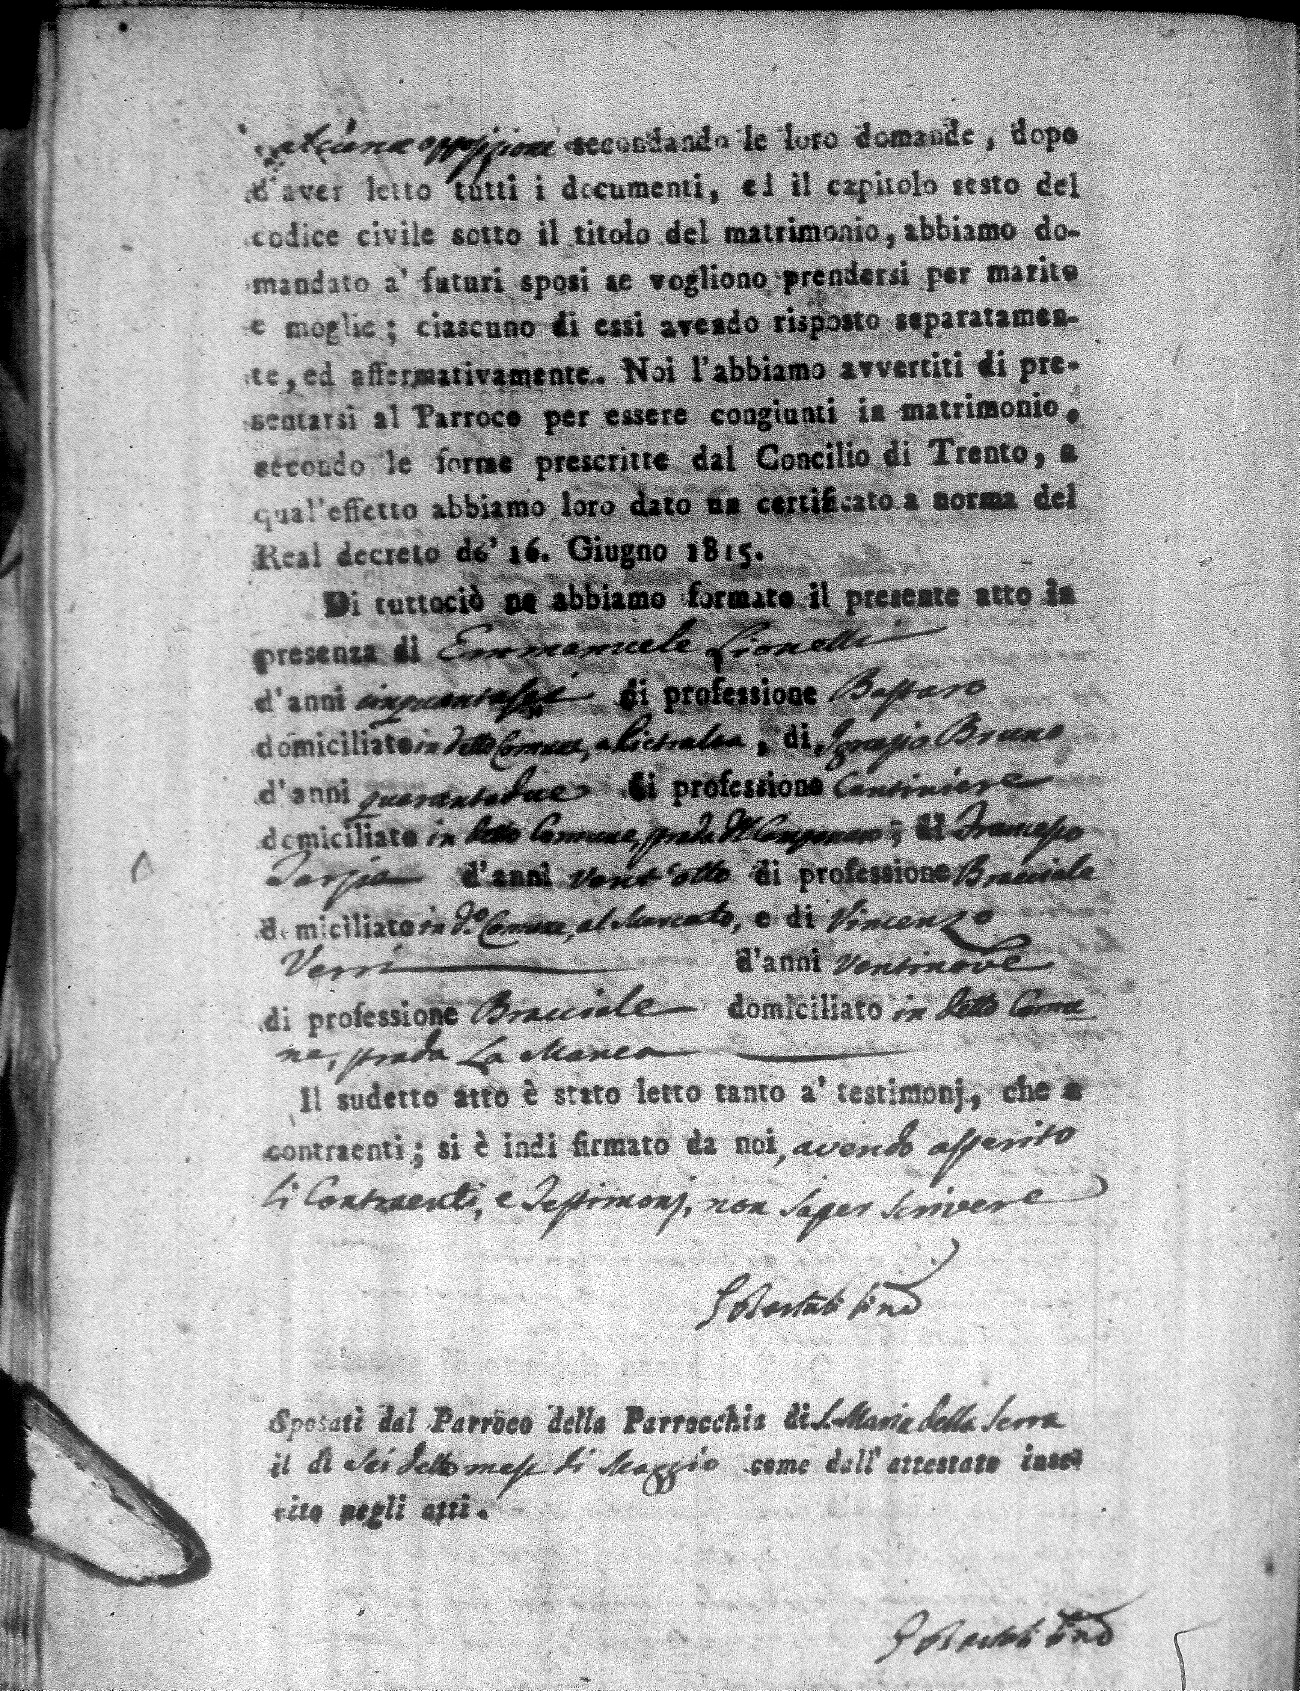 alcuna opposizione secondando le loro domande, dopo
d'aver letto tutti i documenti, ei il capitolo sesto del
codice civile sotto il titolo del matrimonio, abbiamo do-
mandato a' futuri sposi se vogliono prendersi per marito
e moglie; ciascuno di essi avendo risposto separatamen-
te, ed affermativamente. Noi l'abbiamo avvertiti di pre-
sentarsi al Parroco per essere congiunti in matrimonio,
secondo le forme prescritte dal Concilio di Trento, a
qual'effetto abbiamo loro dato un certificato a norma del
Real decreto de' 16. Giugno 1815.
Di tuttociò ne abbiamo formato il presente atto in
presenza di Emmanuele Lionelli
d'anni cinquantasei di professione Bastaro
domiciliato in detto Comune, a Pietralea, di Ignazio Bruno
d'anni quarantadue di professione Cantiniere
domiciliato in detto Comune, strada; di Francesco
Tarsia d'anni vent'otto di professione Bracciale
domiciliato in do. Comune, al Mercato, e di Vincenzo
Verri d'anni ventinove
di professione Bracciale domiciliato in detto Comu
ne, strada La Manca
Il sudetto atto è stato letto tanto a' testimonj, che a
contraenti; si è indi firmato da noi, avendo asserito
li Contraenti, e Testimonj, non saper scrivere

Sposati dal Parroco della Parrocchia di S. Maria della Serra
il dì sei detto mese di Maggio come dall'attestato inse
rito negli atti.